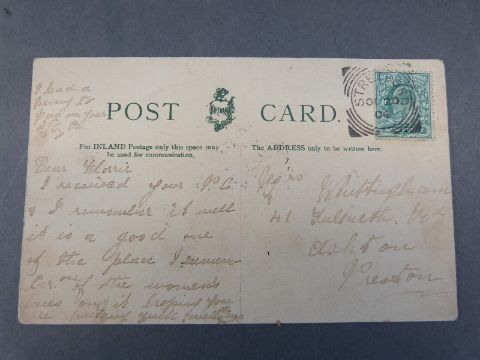 I had a
penny to
pay on your
P.C.
POST CARD.
For INLAND Postage only this space may
be used for communication.
The ADDRESS only to be written here.
Dear Florrie
I received your P.C.
& I remember it well
it is a good one
of the place I remem-
ber one of the women's
faces on it hoping you
are
Mrs Whittingham
41 Rd
Ashton
Preston
STRE
OC 20